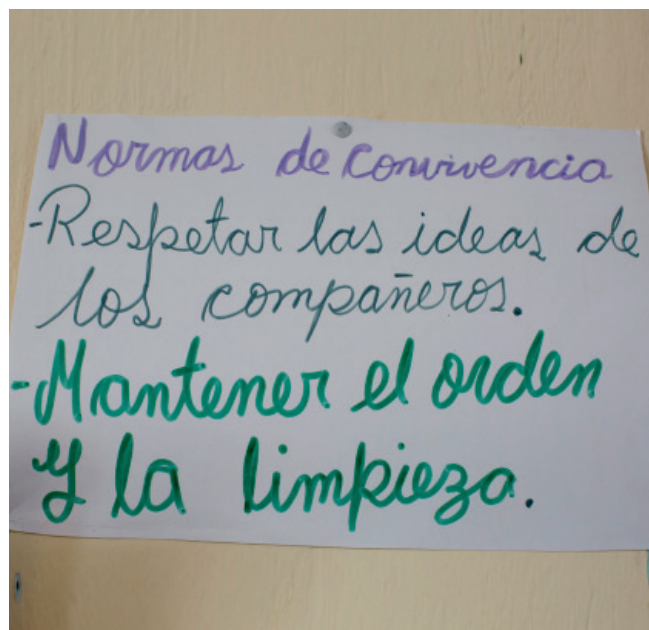 Normas de Convivencia
-Respetar las ideas de
los compañeros.
-Mantener el orden
y la limpieza.